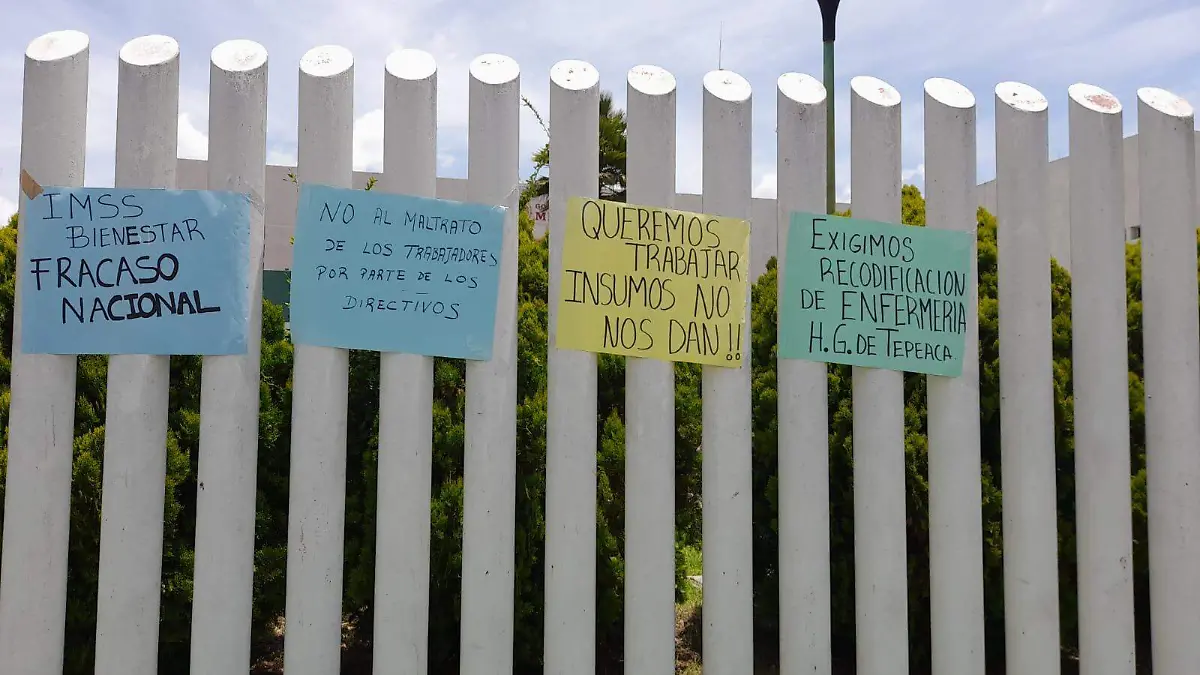 IMSS
BIENESTAR
FRACASO
NACIONAL
NO AL MALTRATO
DE LOS TRABAJADORES
POR PARTE DE LOS
DIRECTIVOS
QUEREMOS
TRABAJAR
INSUMOS NO
NOS DAN!!
EXIGIMOS
RECODIFICACION
DE ENFERMERIA
H.G. DE TEPEACA.